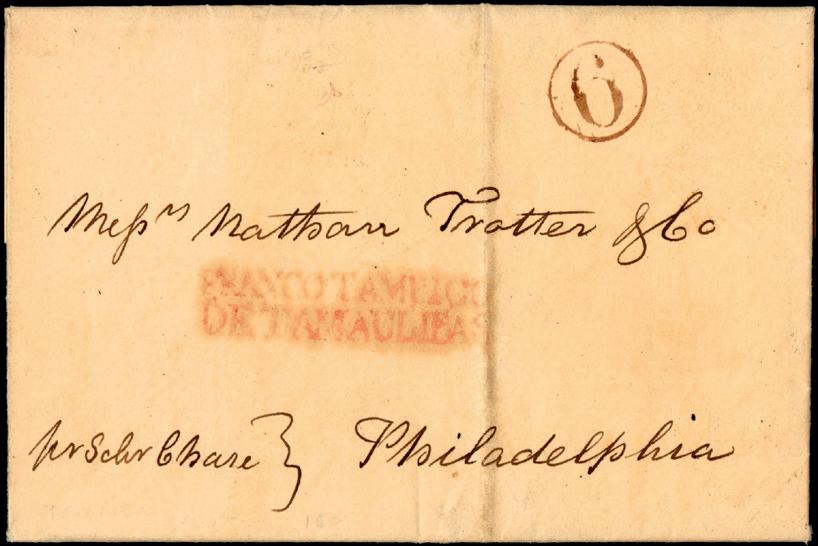 6
Messrs Nathan Trotter & Co
FRANCO TAMPICO
DE TAMAULIPAS
pr Schr Chase } Philadelphia